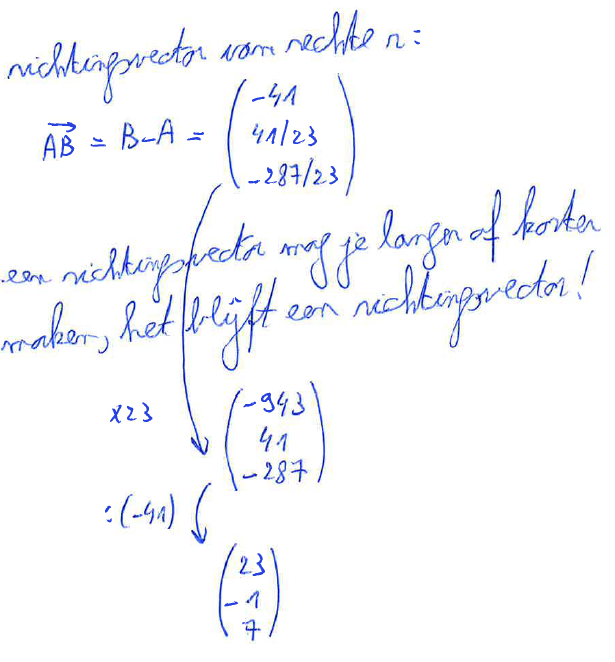 richtingsvector van rechte r:
→AB = B-A = (-41
41/23
-287/23)
een richtingsvector mag je langer of korter
maken, het blijft een richtingsvector!
x23 (-943
41
-287)
:(-41)
(23
-1
7)